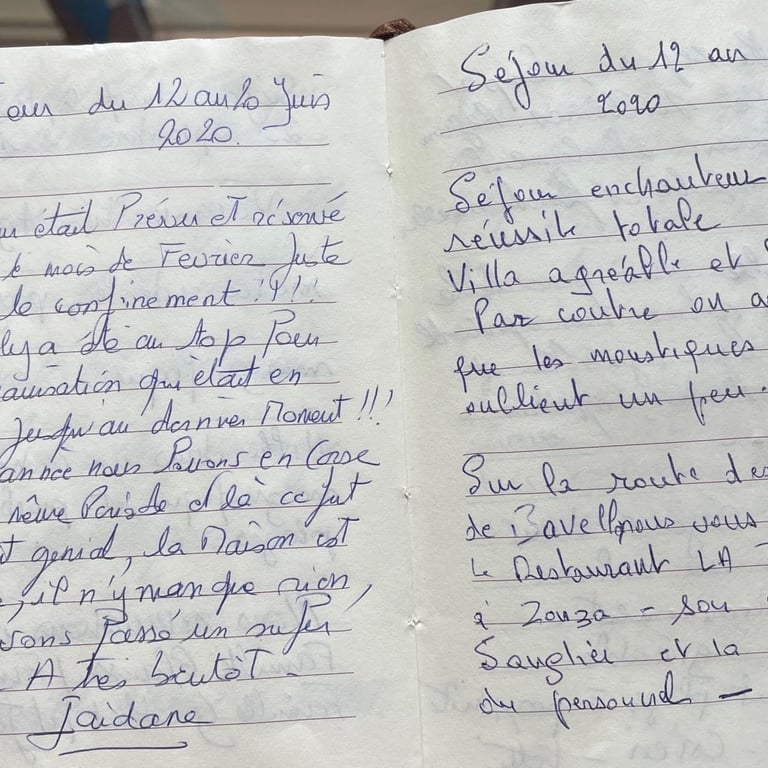 du 12 au 20 Juin
2020.
était Prévu et réservé
le mois de Fevrier Juste
le confinement !!!!
a été au top Pour
qui était en
Jusqu'au dernier Moment !!!
nous Pouvons en Corse
même Paiside et là ce fut
genial, la Maison est
il n'y manque rien,
Passé un super
A très bientôt.
Jaidane
Séjour du 12 au
2020
Séjour enchanteur
réussite totale
Villa agréable et
Par contre on a
que les moustiques
oublient un peu.
Sur la route de
de Bavella nous vous
Le Restaurant LA
à Zonza - Son
Sanglier et la
du personnel -